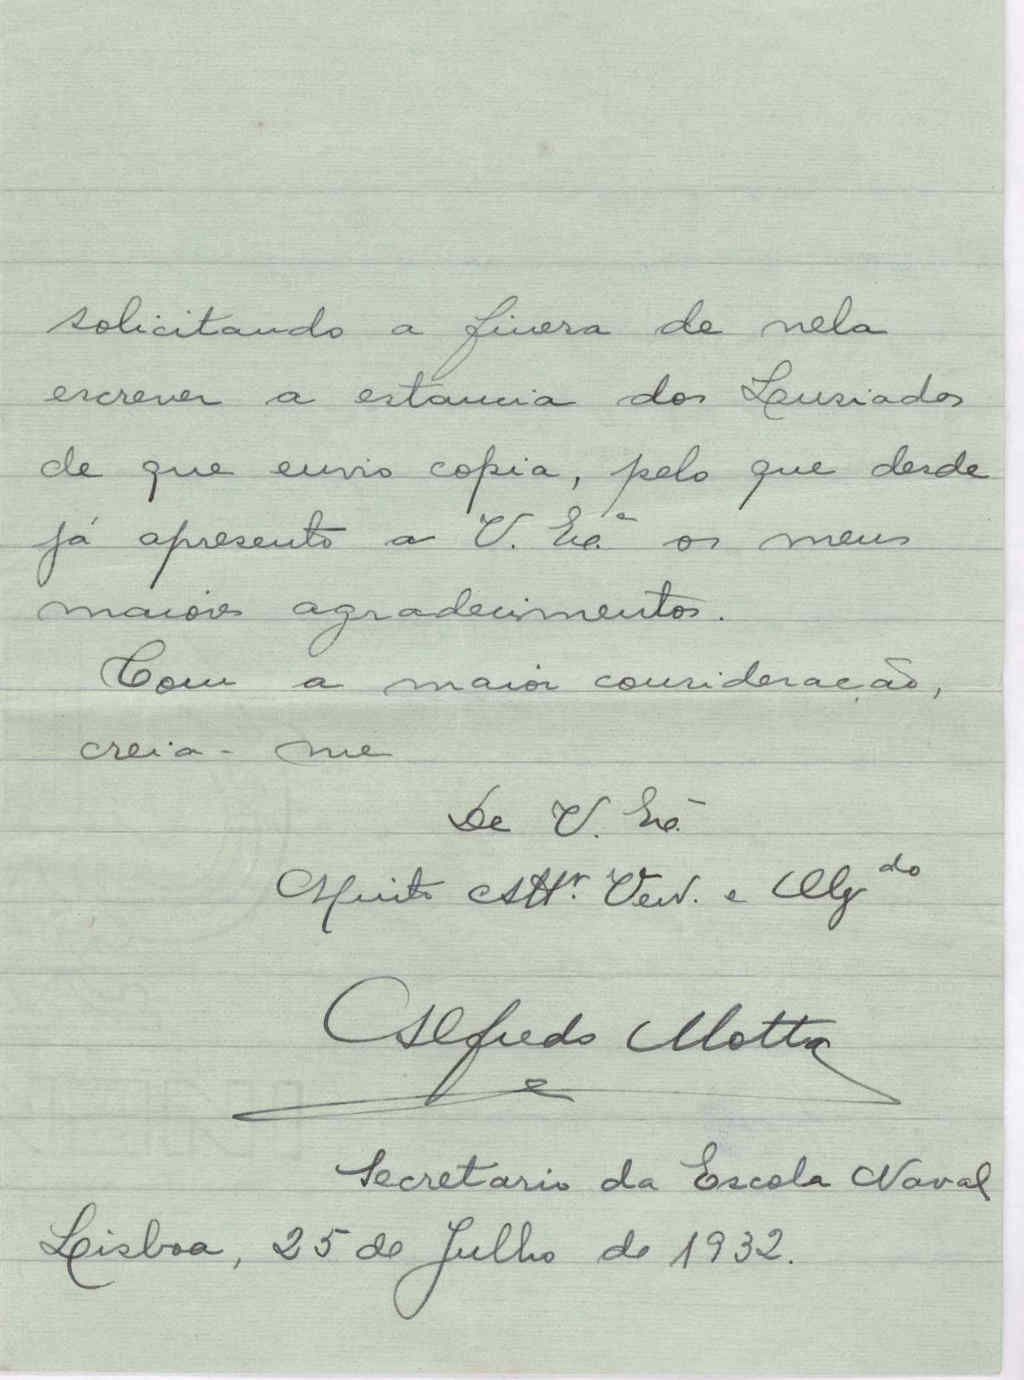 solicitando a fineza de nela
escrever a estancia dos Lusiadas
de que envio copia, pelo que desde
já apresento a V. Exª. os meus
maiores agradecimentos.
Com a maior consideração,
creia-me
De V. Exª.
Muito Attº. Ven. e Obgdo
Alfredo Motta
Secretario da Escola Naval
Lisboa, 25 de Julho de 1932.